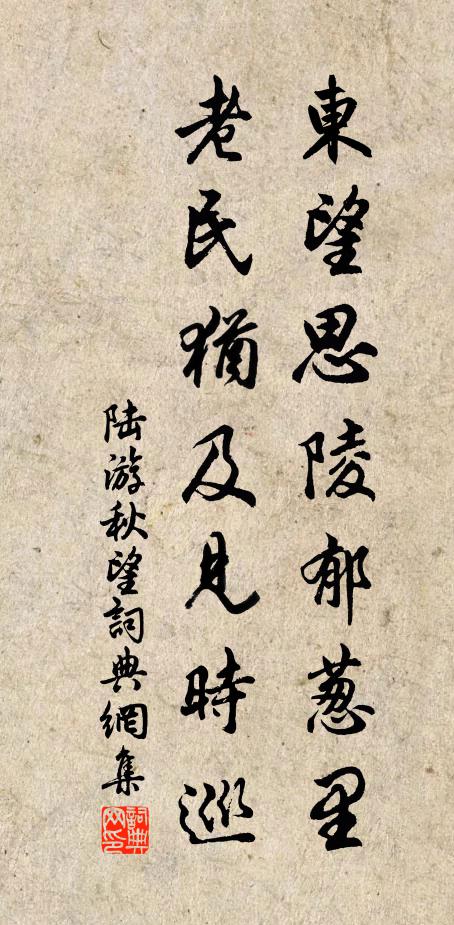 東望思陵郁葱里
老民猶及見時巡
陆游秋望詞典網集
詞典網印